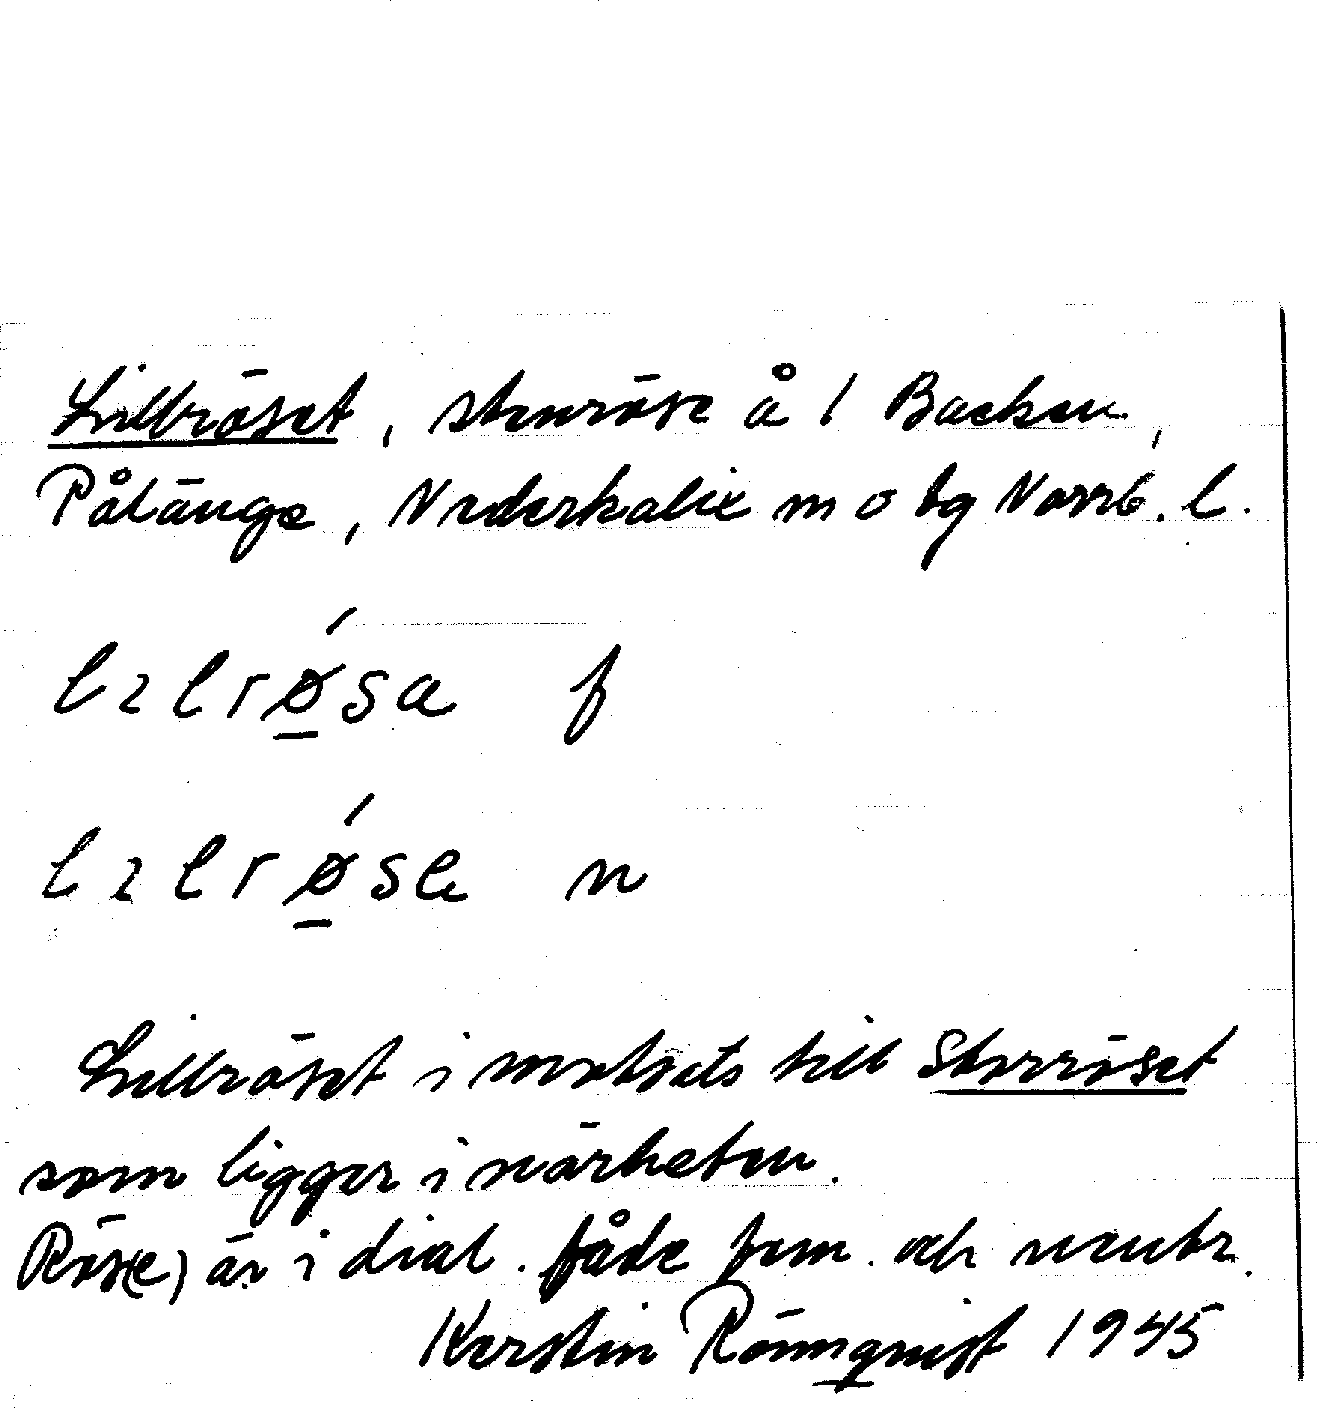 Lillröset, stenröse å 1 Backen,
Pålänge, Nederkalix m o tg Norrb. l.
lılrǿ̲sa f
lılrǿ̲se n
Lillröset i motsats till Storröset
som ligger i närheten.
Rös(e) är i dial. både fem. och neutr.
Kerstin Rönnqvist 1945